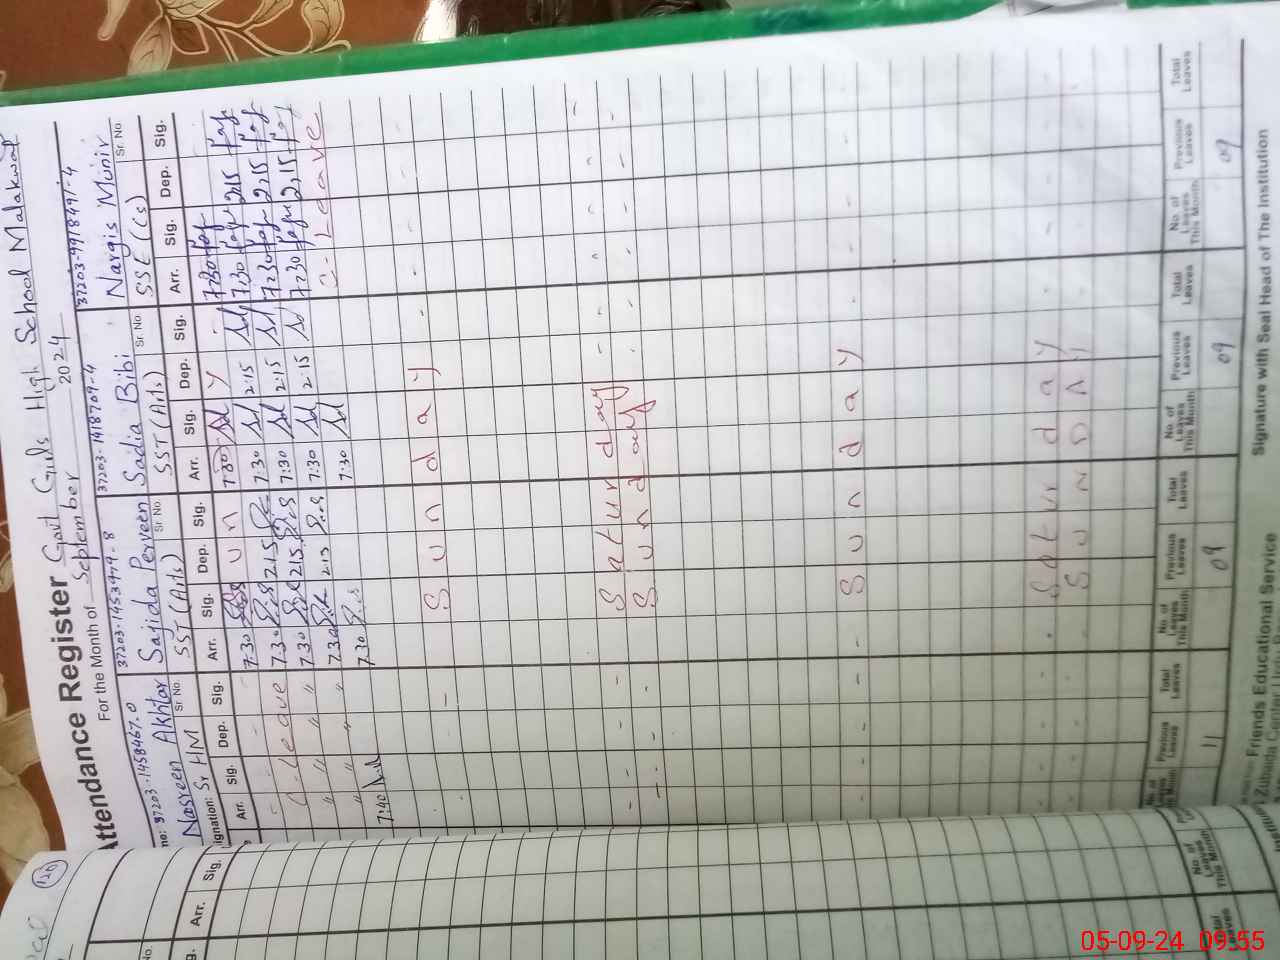 Attendance Register Govt Girls High School Malakwal
For the Month of September 2024
37203-1458467.0 37203-1453979-8 37203-1418709-4 37203-9918491-4
Nasreen Akhtar Sr No. Sajida Perveen Sr No Sadia Bibi Sr No. Nargis Munir Sr. No
Sr HM SST (Arts) SST (Arts) SSE (CS)
Arr. Sig. Dep. Sig. Arr. Sig. Dep. Sig. Arr. Sig. Dep. Sig. Arr. Sig. Dep. Sig.
7.30 S u n 7:30 d a y 7:30
C-Leave 7.30 2.15 7:30 2:15 7:30 2.15
" " " " 7.30 2.15 7:30 2:15 7:30 2,15
" " " " 7.30 2.15 7:30 2:15 7:30 2,15
7:40 7.30 7:30 C-Leave
S u n d a y
Saturday
Sunday
S u n d a y
S a t u r d a y
S U N D A Y
No. of Leaves This Month Previous Leaves Total Leaves No. of Leaves This Month Previous Leaves Total Leaves No. of Leaves This Month Previous Leaves Total Leaves No. of Leaves This Month Previous Leaves Total Leaves
11 09 09 09
Signature with Seal Head of The Institution
Friends Educational Service
Zubaida Center
120
No.
Arr. Sig.
No. of Leaves This Month
Total Leaves
05-09-24 09:55